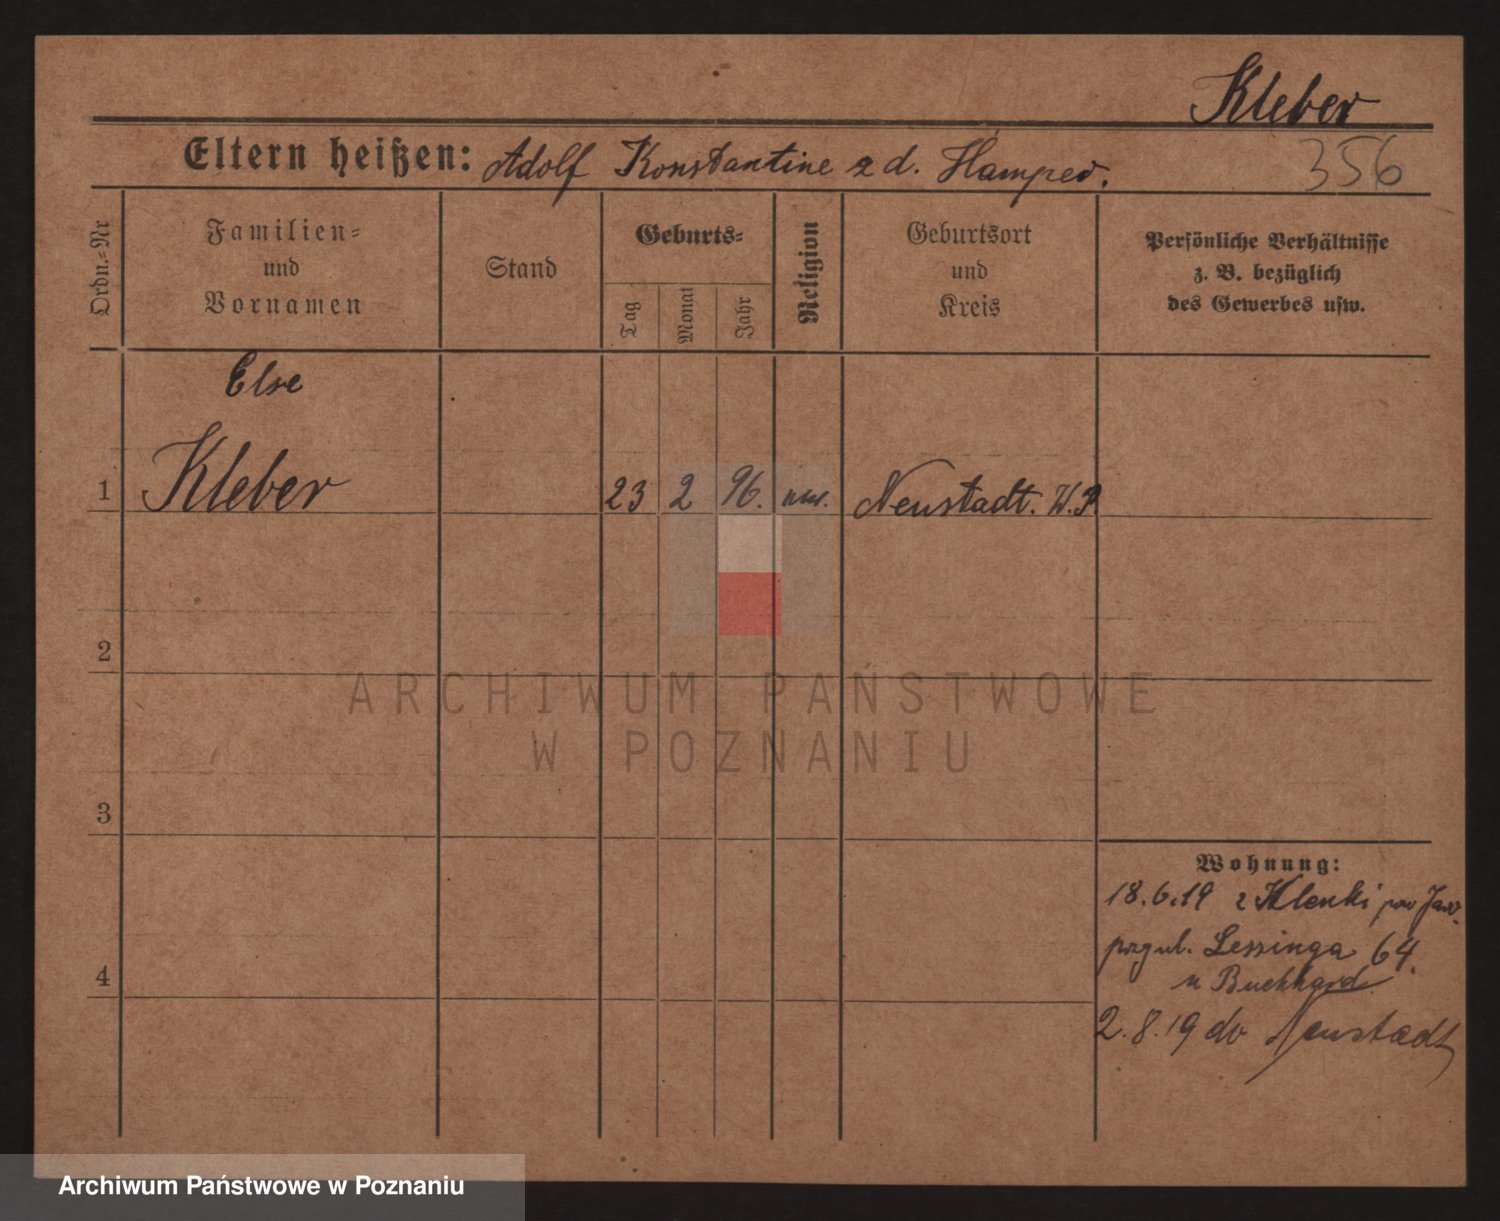 Kleber
Eltern heißen: Adolf Konstantine z d. Hamper.
356
Ordn.-Nr
Familien-
und
Vornamen
Stand
Geburts-
Tag
Monat
Jahr
Religion
Geburtsort
und
Kreis
Persönliche Verhältnisse
z. B. bezüglich
des Gewerbes usw.
Else
1 Kleber 23 2 96. Neustadt. W.P.
2
3
4
Wohnung:
18.6.19 z Klenki pow Jar.
Lessinga 64.
u Buchhard
2.8.19 do Neustadt
ARCHIWUM PAŃSTWOWE
W POZNANIU
Archiwum Państwowe w Poznaniu